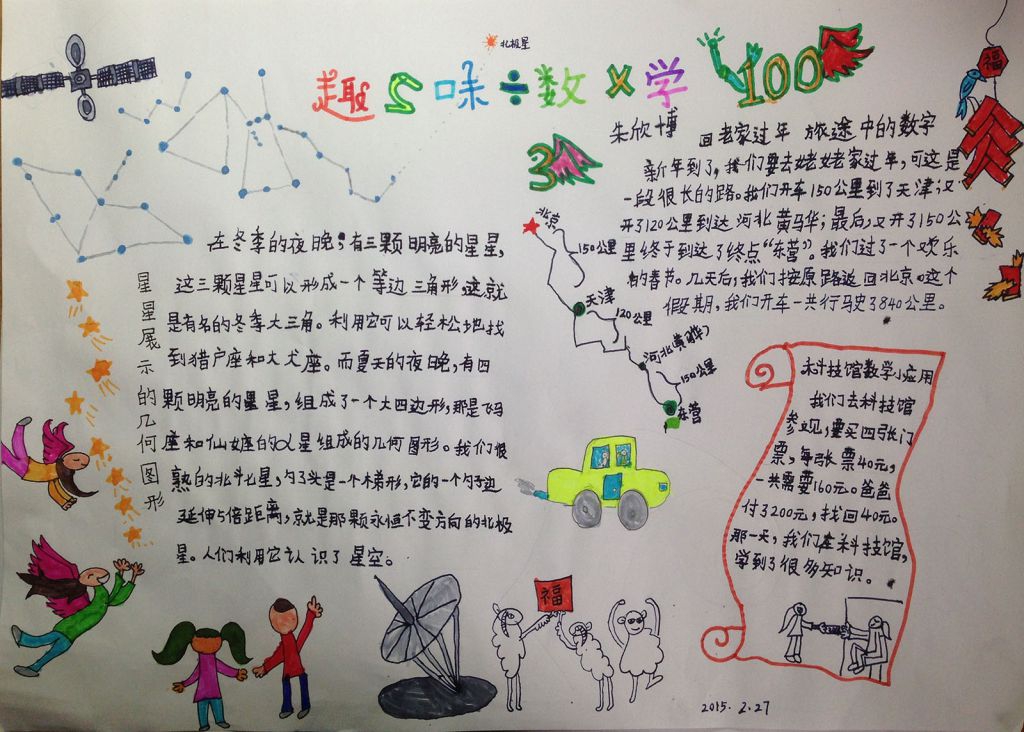 北极星
趣味÷数×学
100
福
朱欣博
3
回老家过年 旅途中的数字
新年到了，我们要去姥姥老家过年，可这是
一段很长的路。我们开车150公里到了天津又
开了120公里到达河北黄马华；最后，又开了150公
里终于到达了终点“东营”。我们过了一个欢乐
的春节。几天后，我们按原路返回北京。这个
假期，我们开车一共行驶了840公里。
北京
150公里
天津
120公里
河北（黄骅）
150公里
东营
星星展示的几何图形
在冬季的夜晚，有三颗明亮的星星，
这三颗星星可以形成一个等边三角形，这就
是有名的冬季大三角。利用它可以轻松地找
到猎户座和大犬座。而夏天的夜晚，有四
颗明亮的星星，组成了一个大四边形，那是飞马
座和仙女座的α星组成的几何图形。我们很
熟的北斗七星，勺子头是一个梯形，它的一个勺子边
延伸5倍距离，就是那颗永恒不变方向的北极
星。人们利用它认识了星空。
科技馆数学小应用
我们去科技馆
参观，要买四张门
票，每张票40元，
一共需要160元。爸爸
付了200元，找回40元。
那一天，我们在科技馆，
学到了很多知识。
福
2015.2.27